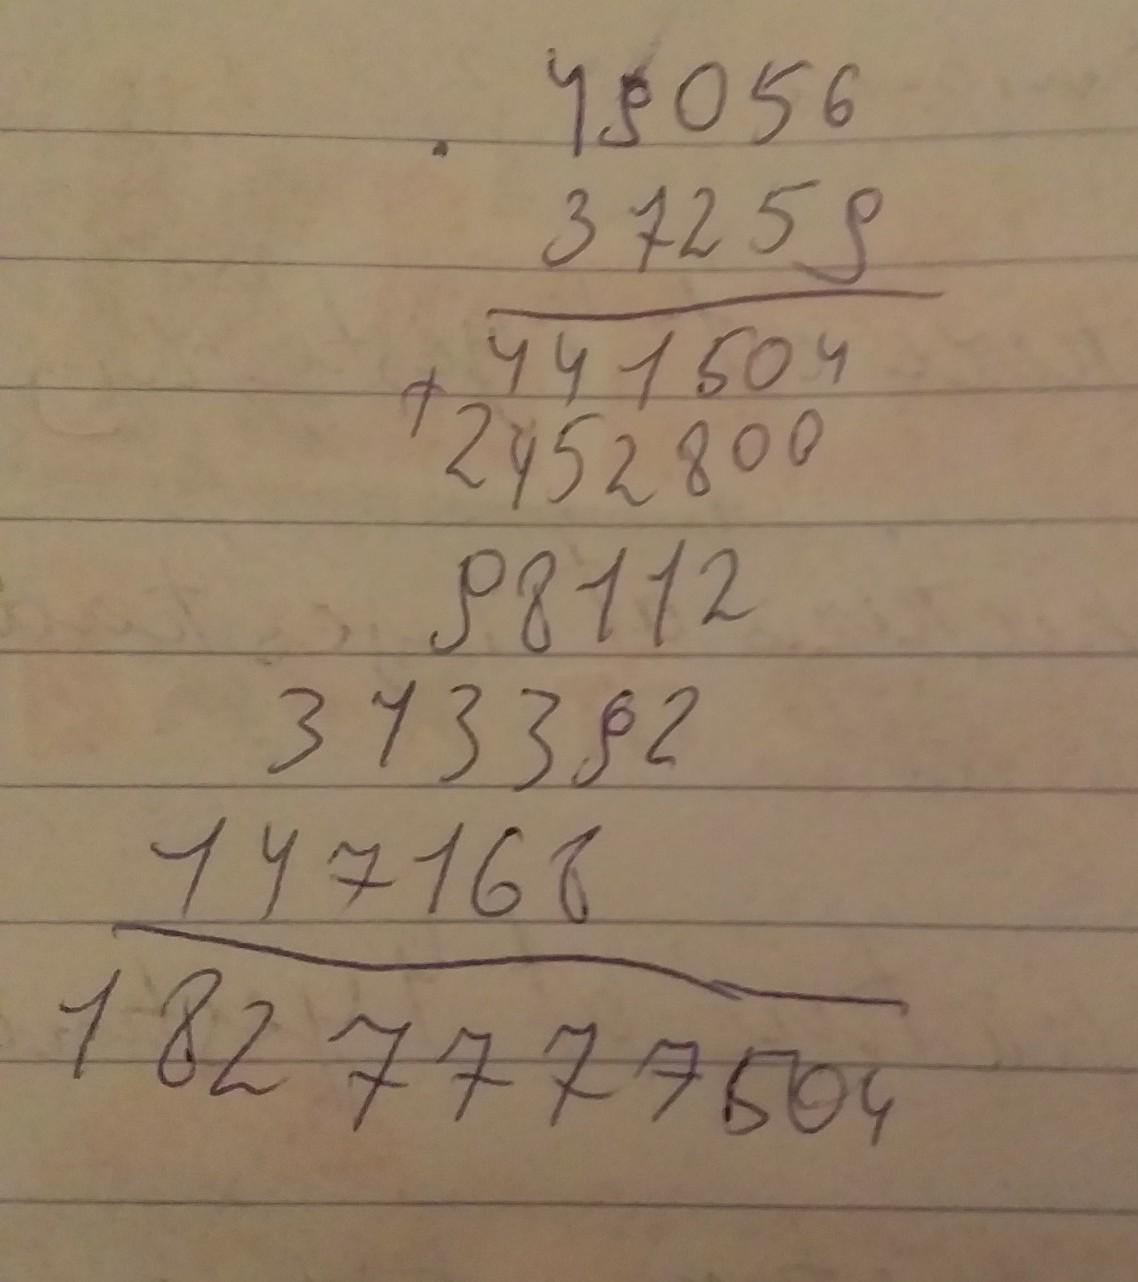 49056
. 37259
441504
+ 2452800
98112
343392
147168
1827777504